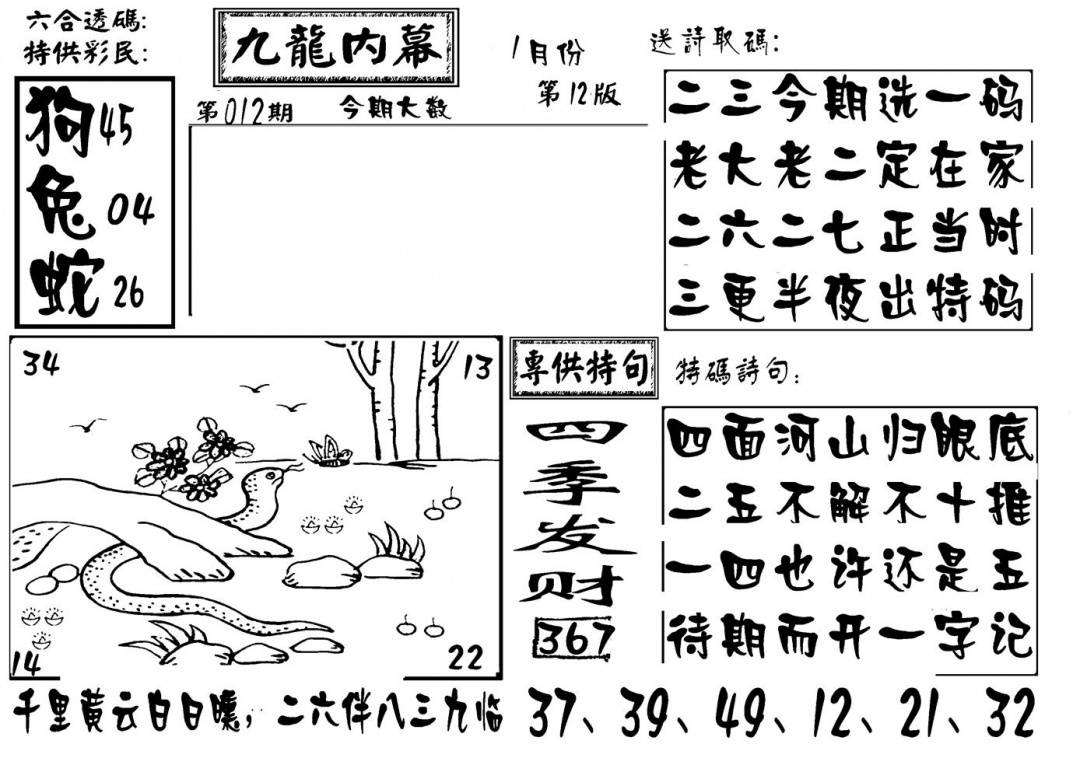 六合透碼:
特供彩民:
九龍内幕
1月份
第12版
送詩取碼:
狗45
兔04
蛇26
第012期
今期大数
二三今期选一码
老大老二定在家
二六二七正当时
三更半夜出特码
34
13
14
22
專供特句
四季发财
367
特碼詩句:
四面河山归眼底
二五不解不十推
一四也许还是五
待期而开一字记
千里黄云白日曛,二六伴八三九临
37、39、49、12、21、32